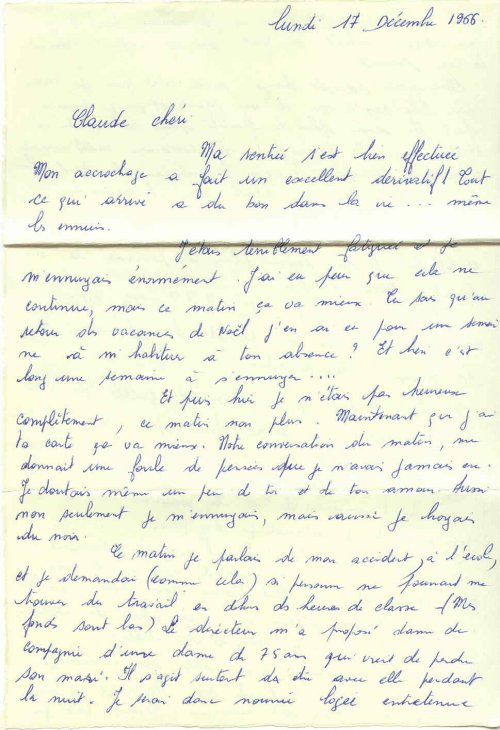 lundi 17 Décembre 1966.
Claude chéri
Ma rentrée s'est bien effectuée
Mon accrochage a fait un excellent dérivatif! Tout
ce qui arrive a du bon dans la vie... même
les ennuis.
J'étais terriblement fatiguée et je
m'ennuyais énormément. J'ai eu peur que cela ne
continue, mais ce matin ça va mieux. Tu sais qu'au
retour des vacances de Noël j'en ai eu pour une semai
ne à m'habituer à ton absence? Et bien c'est
long une semaine à s'ennuyer....
Et puis hier je n'étais pas heureuse
complètement, ce matin non plus. Maintenant que j'ai
ta carte ça va mieux. Notre conversation du matin, me
donnait une foule de pensées que je n'avais jamais eu.
Je doutais même un peu de toi et de ton amour. Aussi
non seulement je m'ennuyais, mais aussi je broyais
du noir.
Ce matin je parlais de mon accident, à l'école,
et je demandai (comme cela) si personne ne pourrait me
trouver du travail en dehors des heures de classe (Mes
fonds sont bas) Le directeur m'a proposé dame de
compagnie d'une dame de 75 ans qui vient de perdre
son mari. Il s'agit surtout de être avec elle pendant
la nuit. Je serai donc nourrie logée entretenue